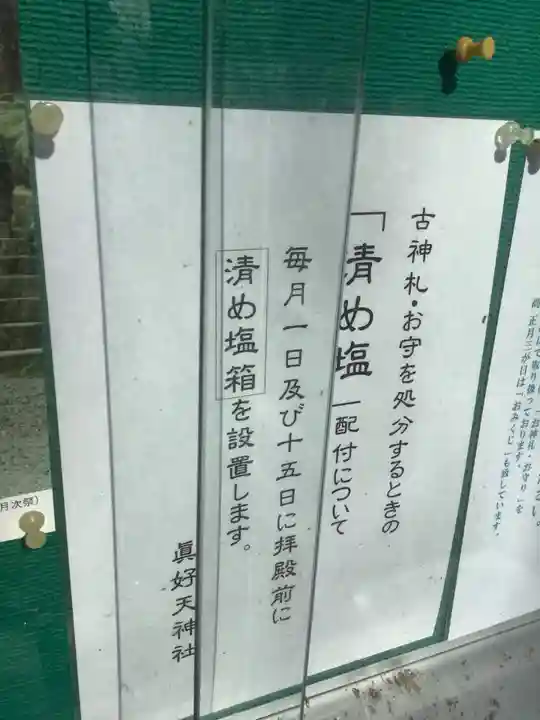 古神札・お守を処分するときの
「清め塩」配付について
毎月一日及び十五日に拝殿前に
清め塩箱を設置します。
眞好天神社
取り扱っております。
正月三が日は「おみくじ」も致しています。
月次祭）